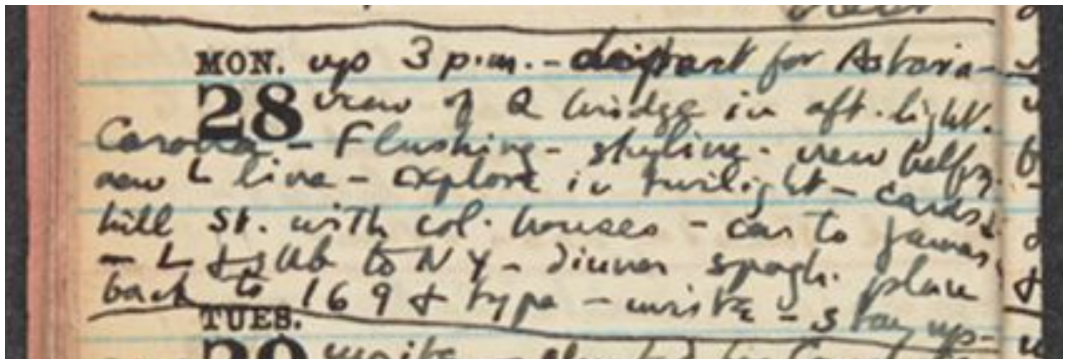 MON. up 3 p.m. - depart for Astoria -
28 view of Q bridge in aft. light.
Corona - Flushing - skyline - new belfry.
new L line - explore in twilight - cards
hill St. with col. houses - car to Jamaica
- L & sub to NY - dinner spagh. place
back to 169 & type - write - stay up -
TUES.
29 write